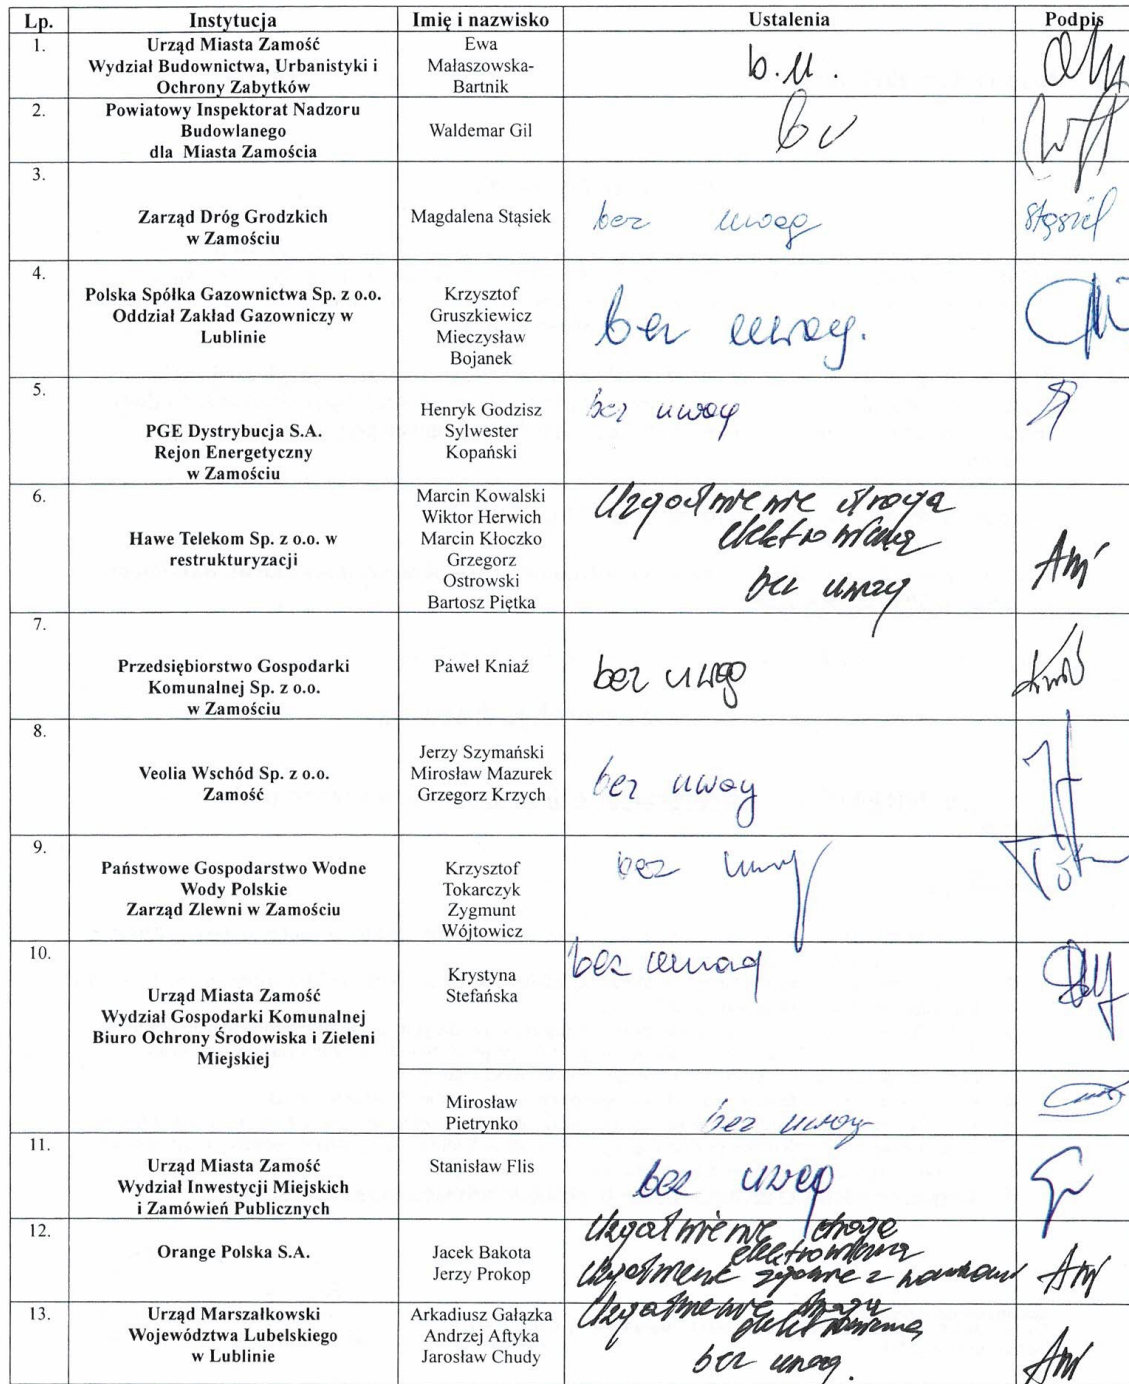 Lp. Instytucja Imię i nazwisko Ustalenia Podpis
1. Urząd Miasta Zamość
Wydział Budownictwa, Urbanistyki i
Ochrony Zabytków
Ewa
Małaszowska-
Bartnik
b.u.
2. Powiatowy Inspektorat Nadzoru
Budowlanego
dla Miasta Zamościa
Waldemar Gil
bu
3.
Zarząd Dróg Grodzkich
w Zamościu
Magdalena Stąsiek
bez uwag
Stąsiek
4.
Polska Spółka Gazownictwa Sp. z o.o.
Oddział Zakład Gazowniczy w
Lublinie
Krzysztof
Gruszkiewicz
Mieczysław
Bojanek
bez uwag.
5.
PGE Dystrybucja S.A.
Rejon Energetyczny
w Zamościu
Henryk Godzisz
Sylwester
Kopański
bez uwag
6.
Hawe Telekom Sp. z o.o. w
restrukturyzacji
Marcin Kowalski
Wiktor Herwich
Marcin Kłoczko
Grzegorz
Ostrowski
Bartosz Piętka
Uzgodnienie drogą
elektroniczną
bez uwag
7.
Przedsiębiorstwo Gospodarki
Komunalnej Sp. z o.o.
w Zamościu
Paweł Kniaź
bez uwag
8.
Veolia Wschód Sp. z o.o.
Zamość
Jerzy Szymański
Mirosław Mazurek
Grzegorz Krzych
bez uwag
9.
Państwowe Gospodarstwo Wodne
Wody Polskie
Zarząd Zlewni w Zamościu
Krzysztof
Tokarczyk
Zygmunt
Wójtowicz
bez uwag
10.
Urząd Miasta Zamość
Wydział Gospodarki Komunalnej
Biuro Ochrony Środowiska i Zieleni
Miejskiej
Krystyna
Stefańska
bez uwag
Mirosław
Pietrynko
bez uwag
11.
Urząd Miasta Zamość
Wydział Inwestycji Miejskich
i Zamówień Publicznych
Stanisław Flis
bez uwag
12.
Orange Polska S.A.
Jacek Bakota
Jerzy Prokop
Uzgodnienie drogą
elektroniczną
Uzgodnienie zgodnie z
13. Urząd Marszałkowski
Województwa Lubelskiego
w Lublinie
Arkadiusz Gałązka
Andrzej Aftyka
Jarosław Chudy
Uzgodnienie drogą
elektroniczną
bez uwag.